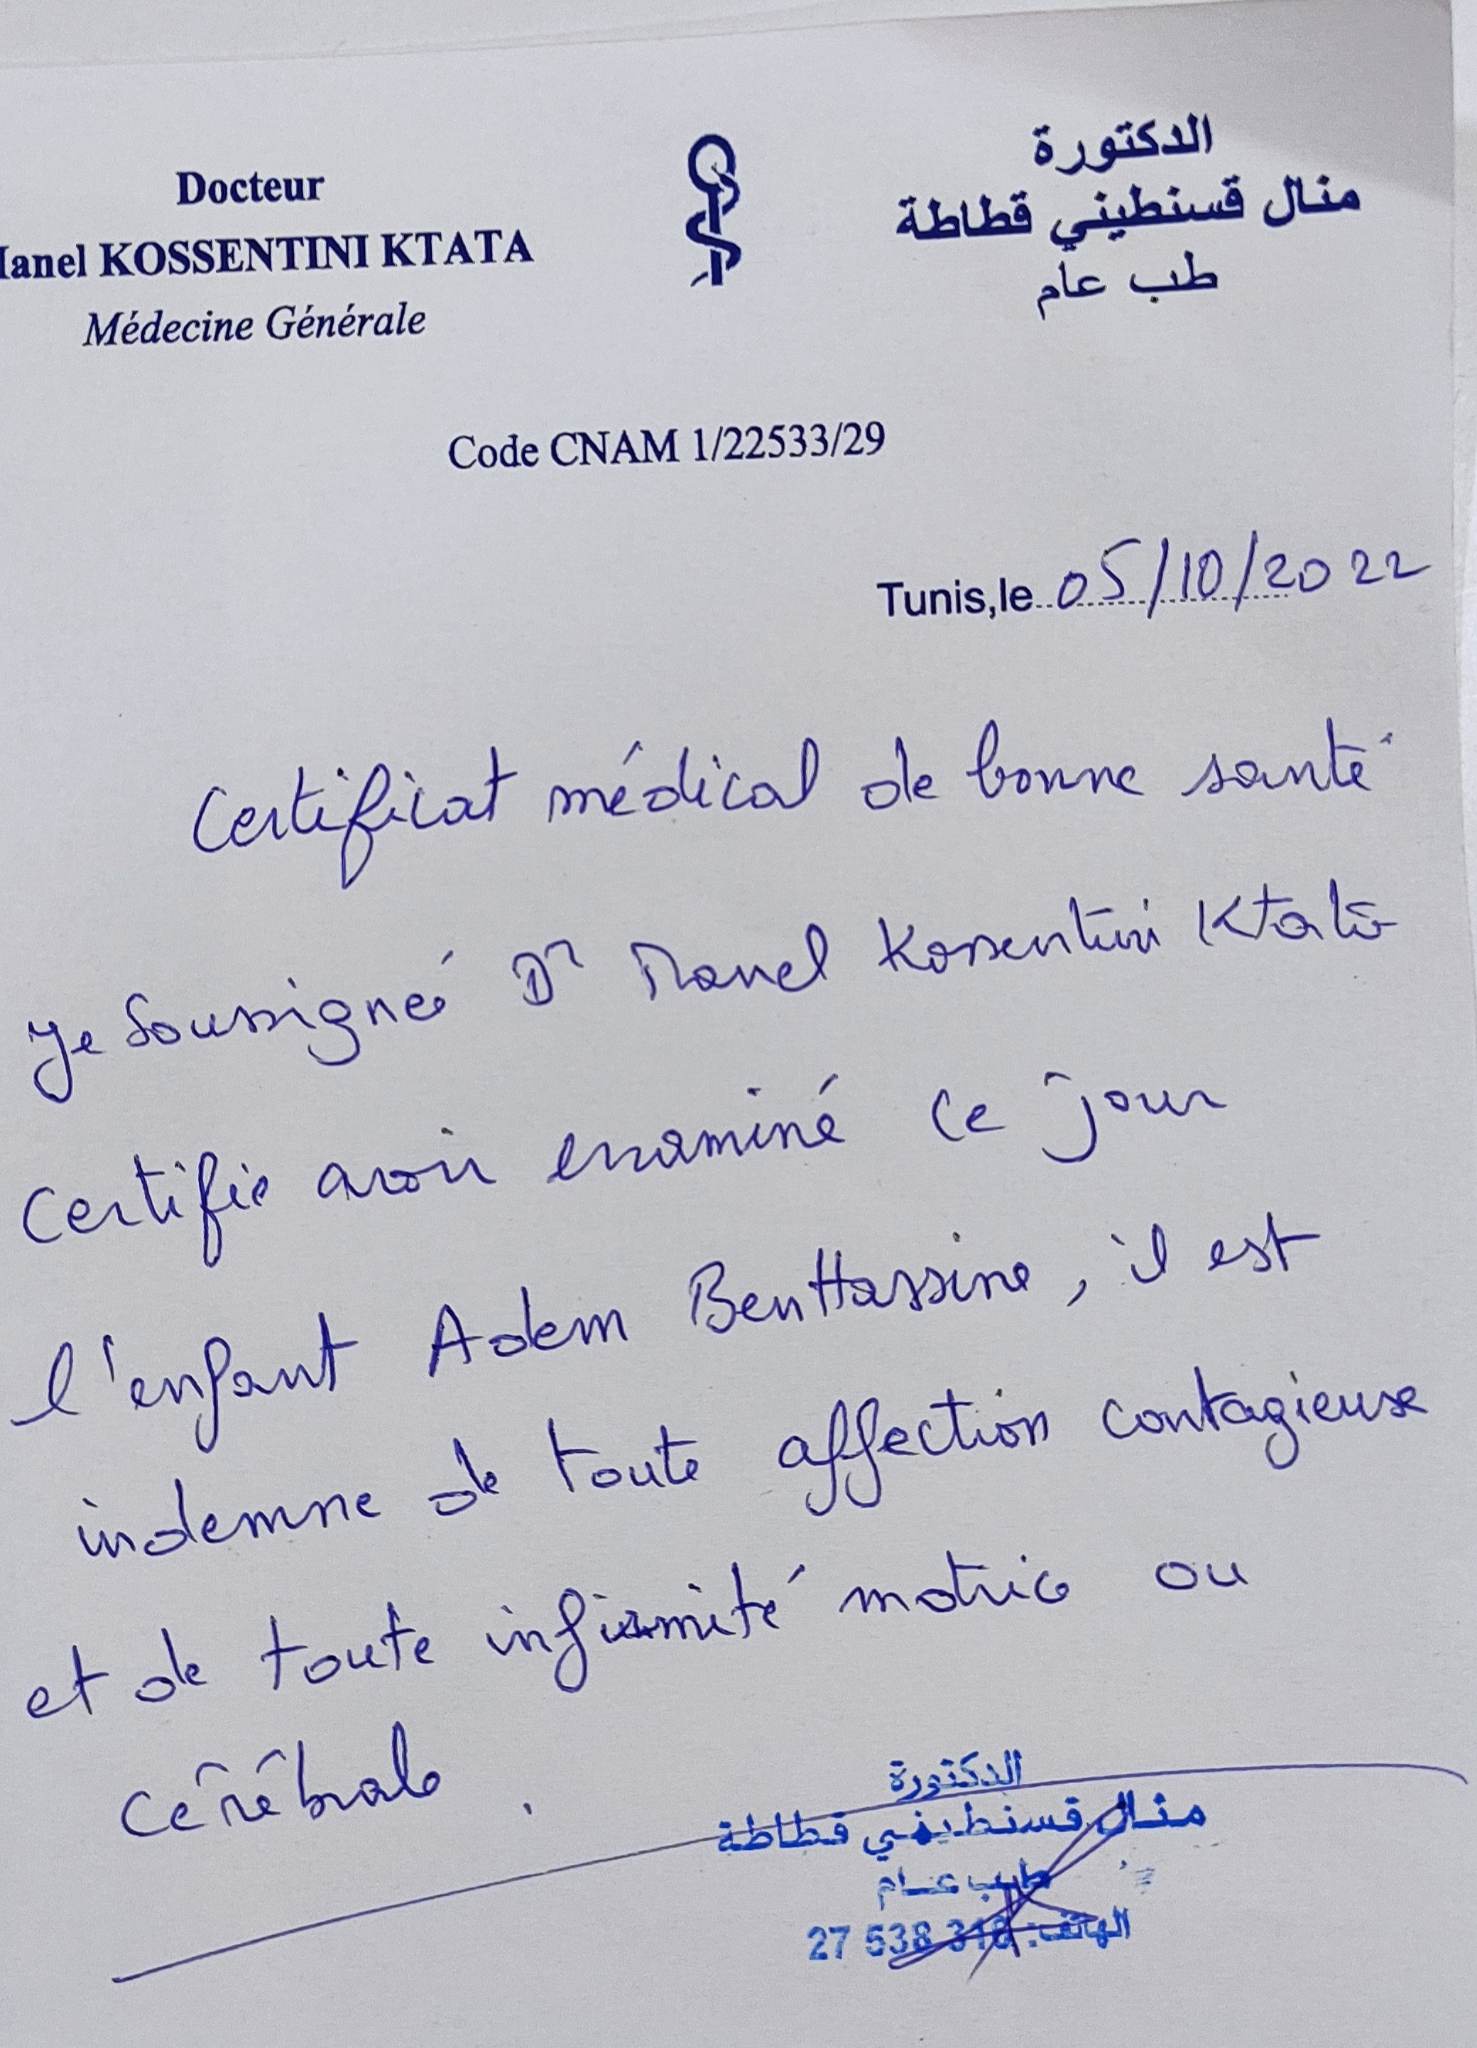 Docteur
Manel KOSSENTINI KTATA
Médecine Générale
الدكتورة
منال قسنطيني قطاطة
طب عام
Code CNAM 1/22533/29
Tunis,le 05/10/2022
Certificat médical de bonne santé
Je soussigné Dr Manel Kossentini Ktata
certifie avoir examiné ce jour
l'enfant Adem BenHassine, il est
indemne de toute affection contagieuse
et de toute infirmité motrice ou
cérébrale.
الدكتورة
منال قسنطيني قطاطة
طبيب عام
الهاتف: 27 538 318